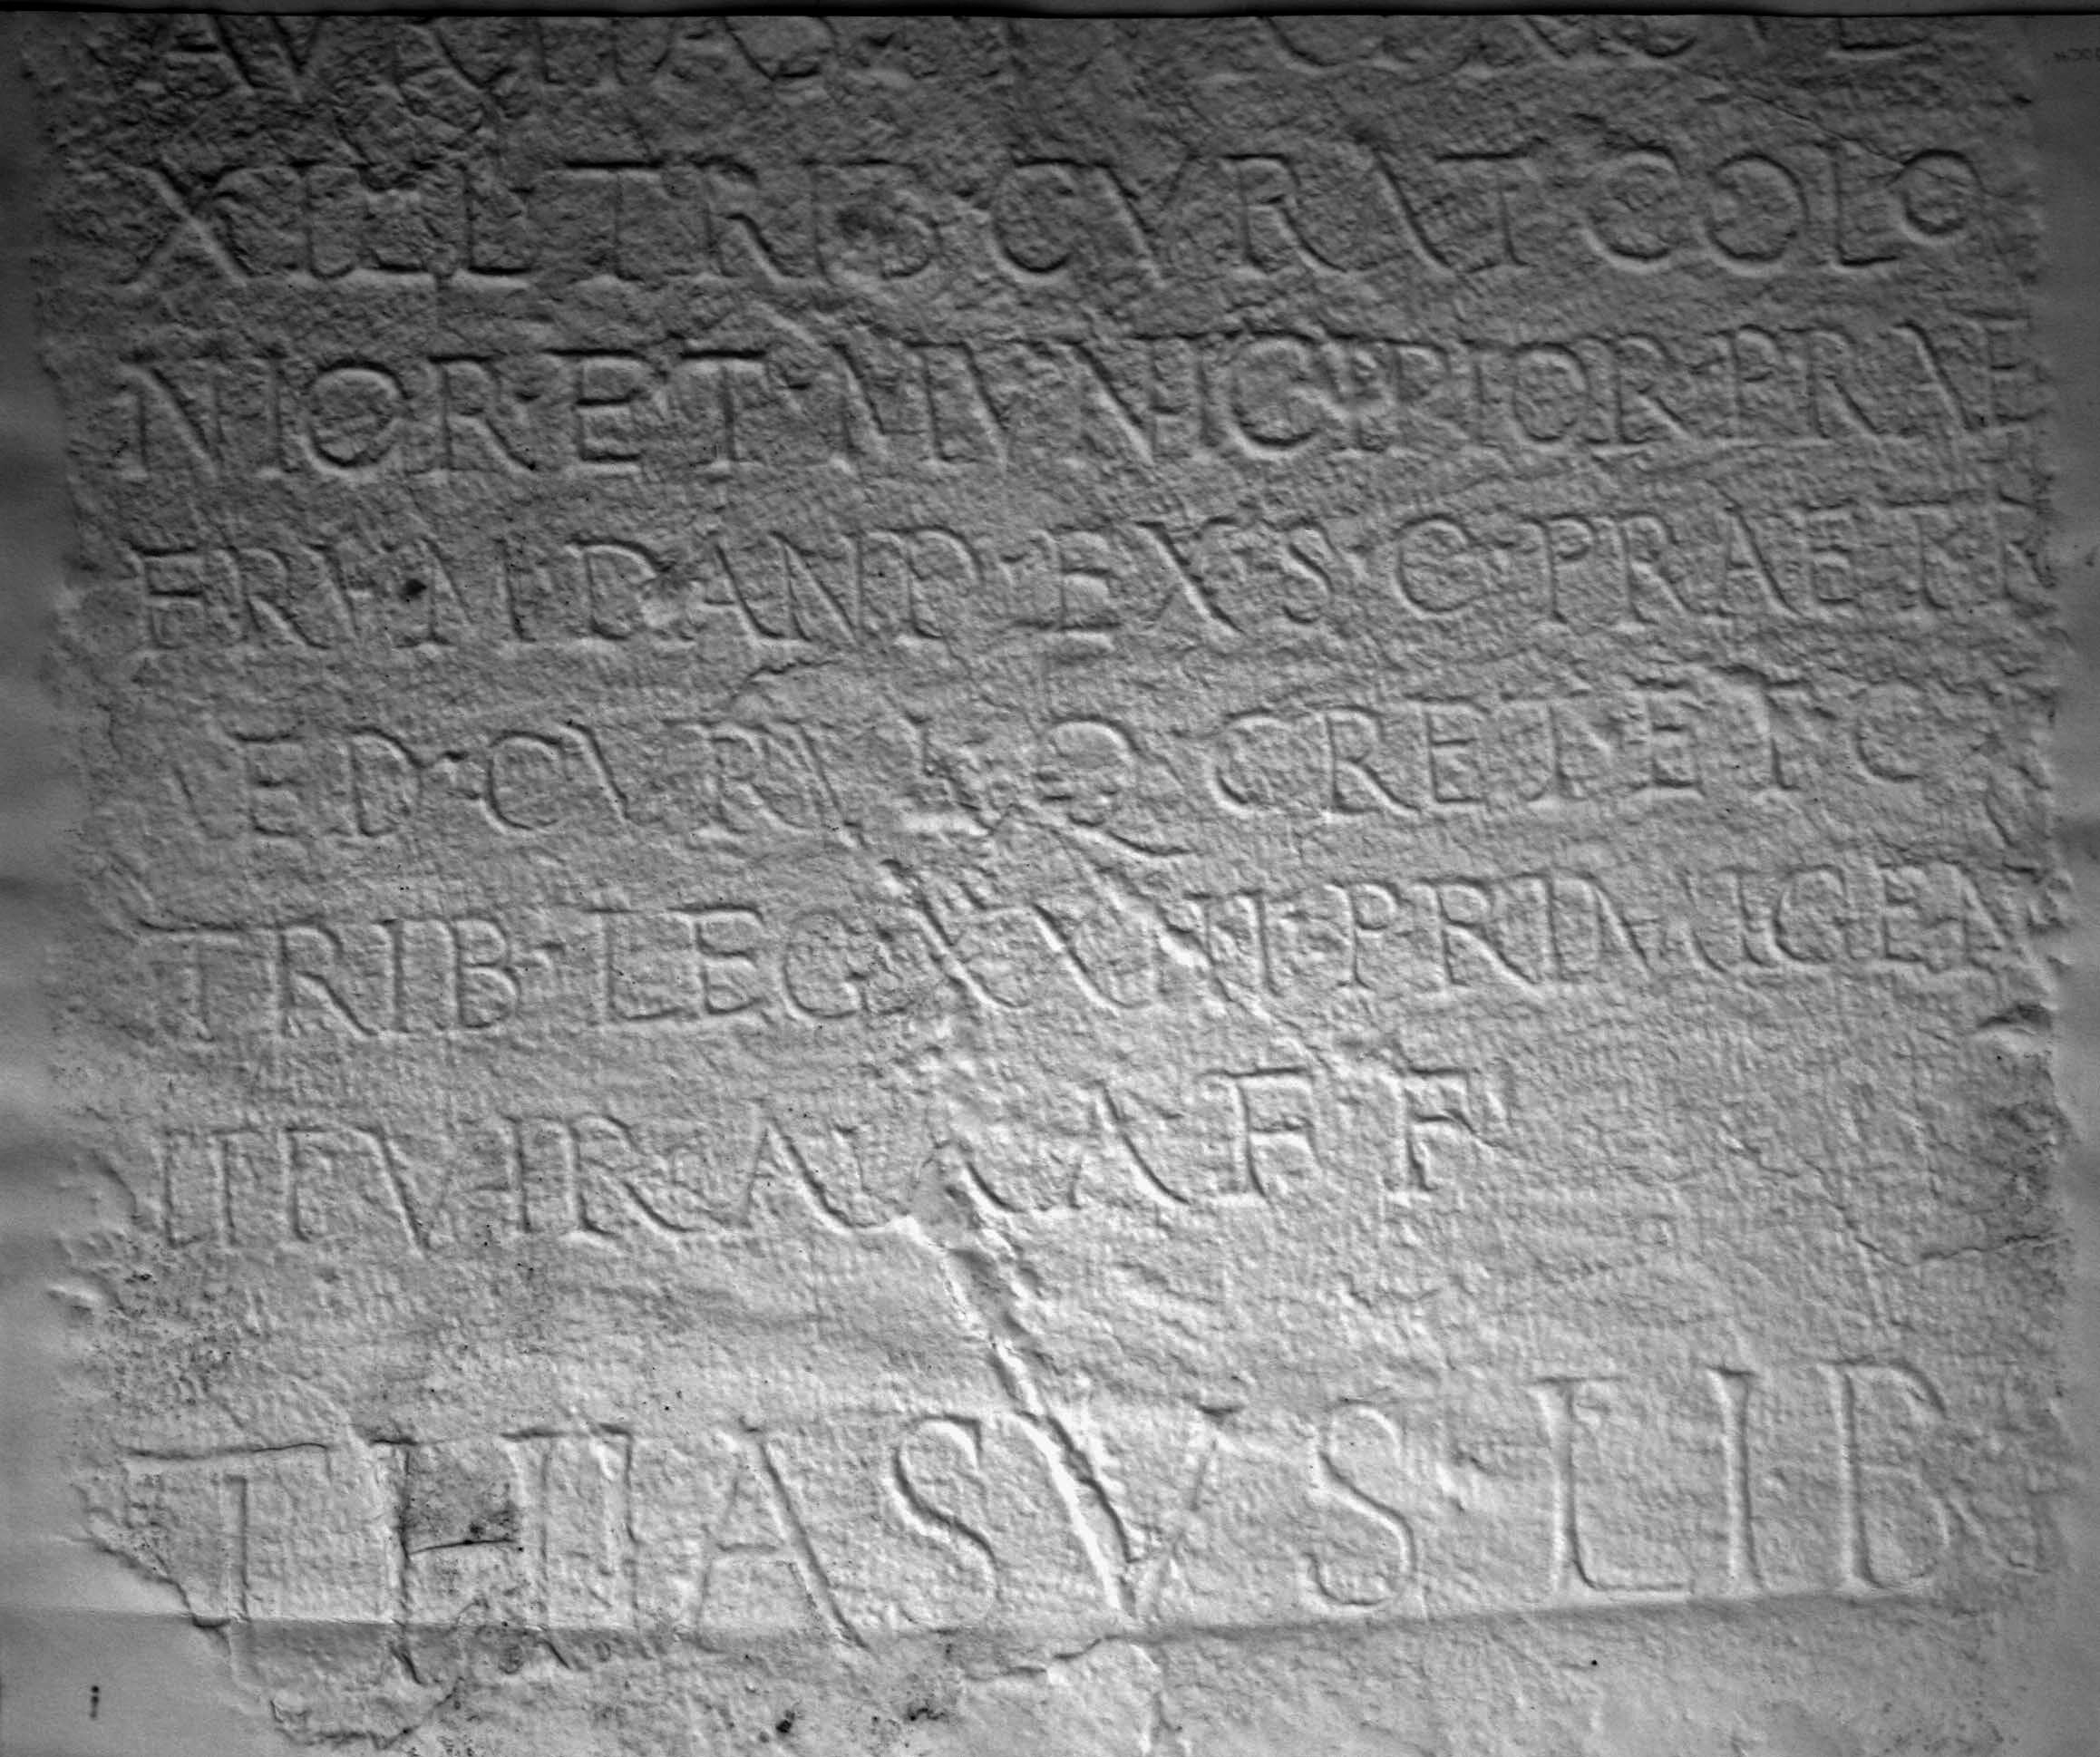 XII L TRIB CVRAT COLO
NIOR ET MVNICIPIOR PRAE
FRVM DAND EX S C PRAET
AED CVRVL Q CRET ET C
TRIB LEG XXII PRIMIGEN
IIIVIR A A A F F
THIASVS LIB